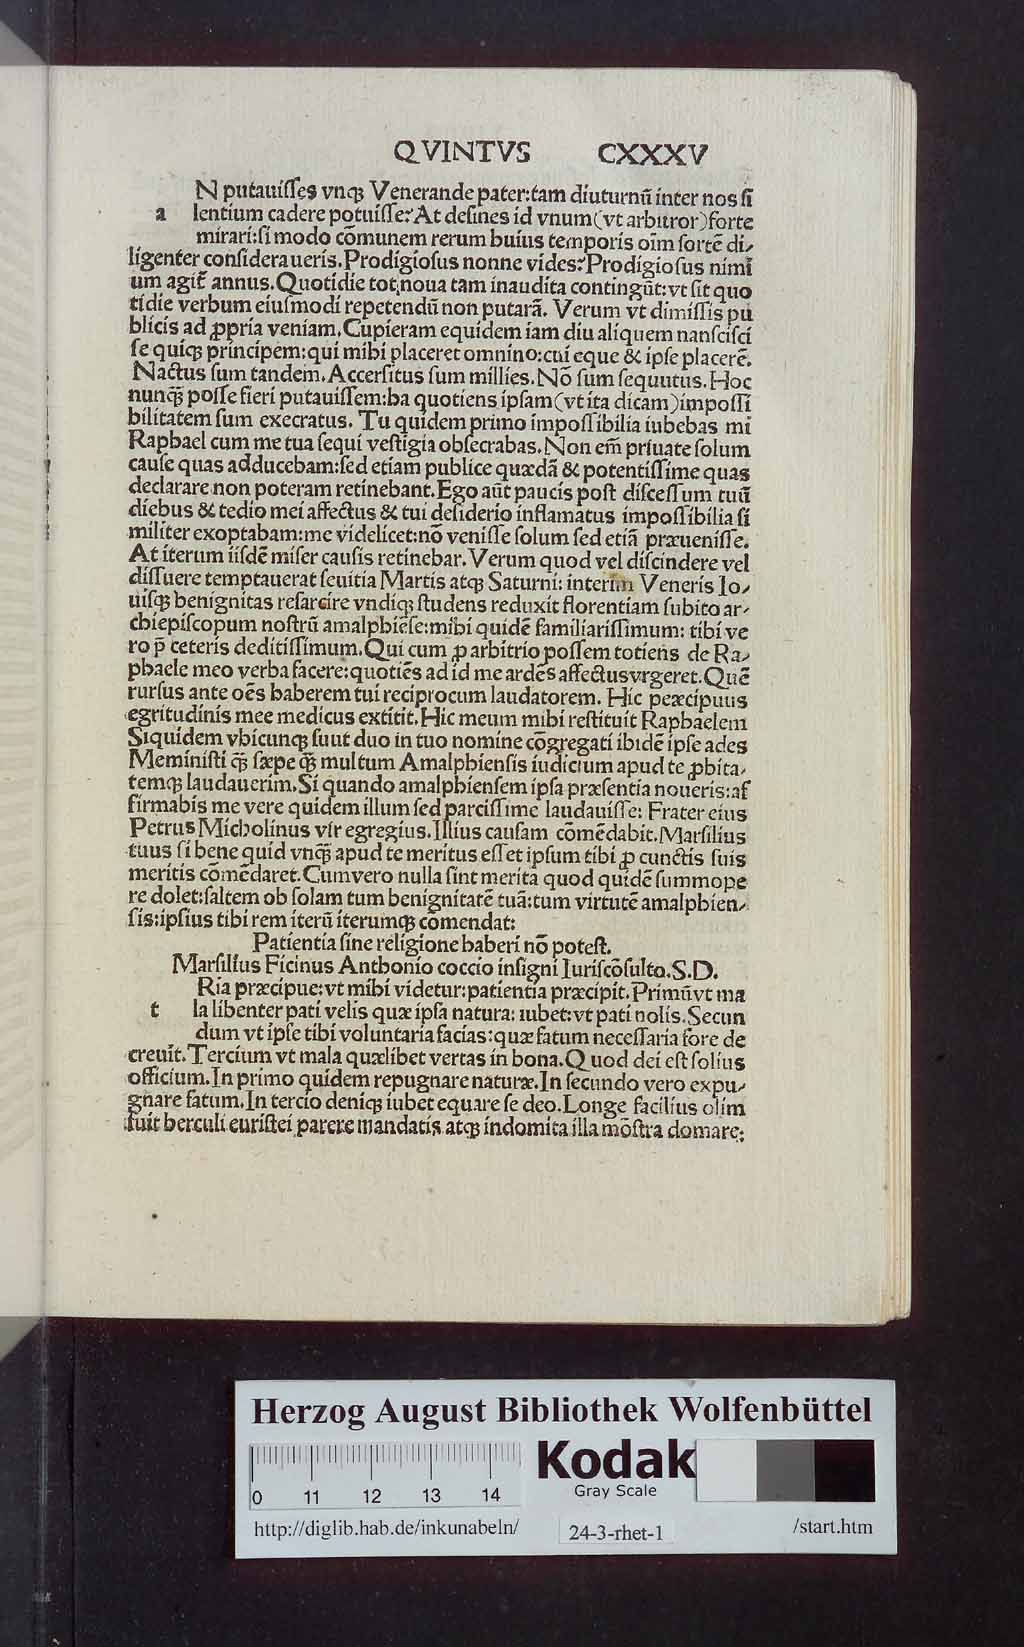 QVINTVS CXXXV
N putauiſſes vnqȝ Venerande pater:tam diuturnū inter nos ſi
a lentium cadere potuiſſe? At deſines id vnum(vt arbitror)forte
mirari:ſi modo cōmunem rerum huius temporis oīm ſortē di⸗
ligenter conſideraueris.Prodigioſus nonne vides? Prodigioſus nimi
um agit᷑ annus.Quotidie tot,noua tam inaudita contingūt:vt ſit quo
tidie verbum eiuſmodi repetendū non putarā. Verum vt dimiſſis pu
blicis ad ꝓpria veniam.Cupieram equidem iam diu aliquem nanſciſci
ſe quiqȝ principem:qui mihi placeret omnino:cui eque & ipſe placerē.
Nactus ſum tandem.Accerſitus ſum millies.Nō ſum ſequutus.Hoc
nunqȝ̄ poſſe fieri putauiſſem:ha quotiens ipſam(vt ita dicam)impoſſi
bilitatem ſum execratus. Tu quidem primo impoſſibilia iubebas mi
Raphael cum me tua ſequi veſtigia obſecrabas.Non em̄ priuate ſolum
cauſe quas adducebam:ſed etiam publice quædā & potentiſſime quas
declarare non poteram retinebant.Ego aūt paucis poſt diſceſſum tuū
diebus & tedio mei affectus & tui deſiderio inflamatus impoſſibilia ſi
militer exoptabam:me videlicet:nō veniſſe ſolum ſed etiā præueniſſe.
At iterum iiſdē miſer cauſis retinebar.Verum quod vel diſcindere vel
diſſuere temptauerat ſeuitia Martis atqȝ Saturni: interim Veneris Io⸗
uiſqȝ benignitas reſarcire vndiqȝ ſtudens reduxit florentiam ſubito ar⸗
chiepiſcopum noſtrū amalphiēſe:mihi quidē familiariſſimum: tibi ve
ro p̄ ceteris deditiſſimum.Qui cum ꝓ arbitrio poſſem totiens de Ra⸗
phaele meo verba facere:quotiēs ad id me ardēs affectusvrgeret.Quē
rurſus ante oēs haberem tui reciprocum laudatorem. Hic peæcipuus
egritudinis mee medicus extitit.Hic meum mihi reſtituit Raphaelem
Siquidem vbicunqȝ ſuut duo in tuo nomine cōgregati ibidē ipſe ades
Meminiſti qȝ̄ ſæpe qȝ̄ multum Amalphienſis iudicium apud te ꝓbita⸗
temqȝ laudauerim.Si quando amalphienſem ipſa præſentia noueris:af
firmabis me vere quidem illum ſed parciſſime laudauiſſe: Frater eius
Petrus Micholinus vir egregius.Illius cauſam cōmēdabit.Marſilius
tuus ſi bene quid vnqȝ̄ apud te meritus eſſet ipſum tibi ꝓ cunctis ſuis
meritis cōmēdaret.Cumvero nulla ſint merita quod quidē ſummope
re dolet:ſaltem ob ſolam tum benignitatē tuā:tum virtutē amalphien⸗
ſis:ipſius tibi rem iterū iterumqȝ cōmendat:
Patientia ſine religione haberi nō poteſt.
Marſilius Ficinus Anthonio coccio inſigni Iuriſcōſulto.S.D.
Ria præcipue:vt mihi videtur:patientia præcipit.Primūvt ma
t la libenter pati velis quæ ipſa natura: iubet:vt pati nolis.Secun
dum vt ipſe tibi voluntaria facias:quæ fatum neceſſaria fore de
creuit.Tercium vt mala quælibet vertas in bona.Quod dei eſt ſolius
officium.In primo quidem repugnare naturæ.In ſecundo vero expu⸗
gnare fatum.In tercio deniqȝ iubet equare ſe deo.Longe facilius olim
fuit herculi euriſtei parere mandatis atqȝ indomita illa mōſtra domare:
Herzog August Bibliothek Wolfenbüttel
0 11 12 13 14
Kodak
Gray Scale
http://diglib.hab.de/inkunabeln/ 24-3-rhet-1 /start.htm